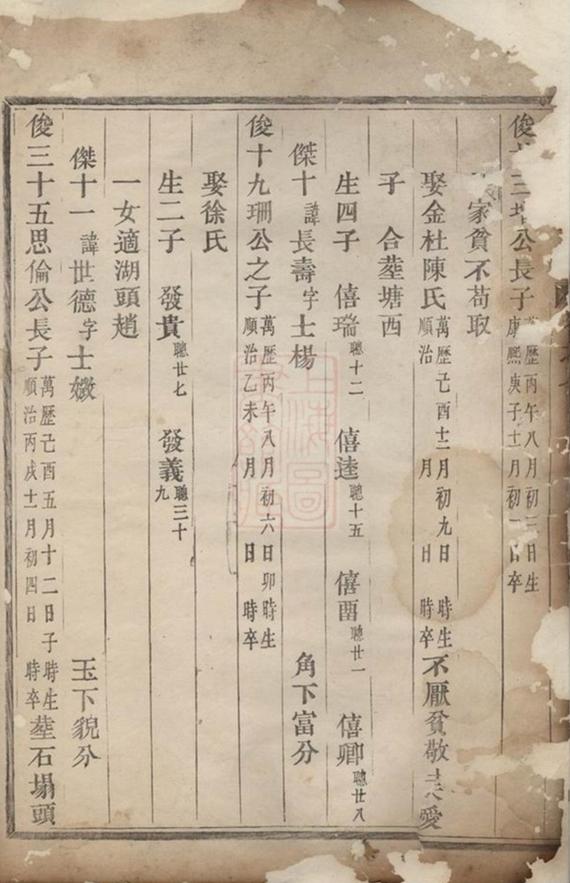 俊十三 公長子 萬歷丙午八月初三日生 康熙庚子十一月初 日卒
家貧不苟取
娶金杜陳氏 萬歷己酉十二月初九日 時生 順治 月 日 時卒 不厭貧敬夫愛
子 合塟塘西
生四子 僖瑞 聰十二 僖逵 聰十五 僖 聰廿一 僖卿 聰廿八
傑十 諱長壽字士楊 角下富分
俊十九珊公之子 萬歷丙午八月初六日卯時生 順治乙未 月 日 時卒
娶徐氏
生二子 發貴 聰廿七 發義 聰三十九
一女適湖頭趙
傑十一 諱世德字士㜫 玉下貌分
俊三十五思倫公長子 萬歷己酉五月十二日子時生 順治丙戌十一月初四日 時卒 塟石塌頭